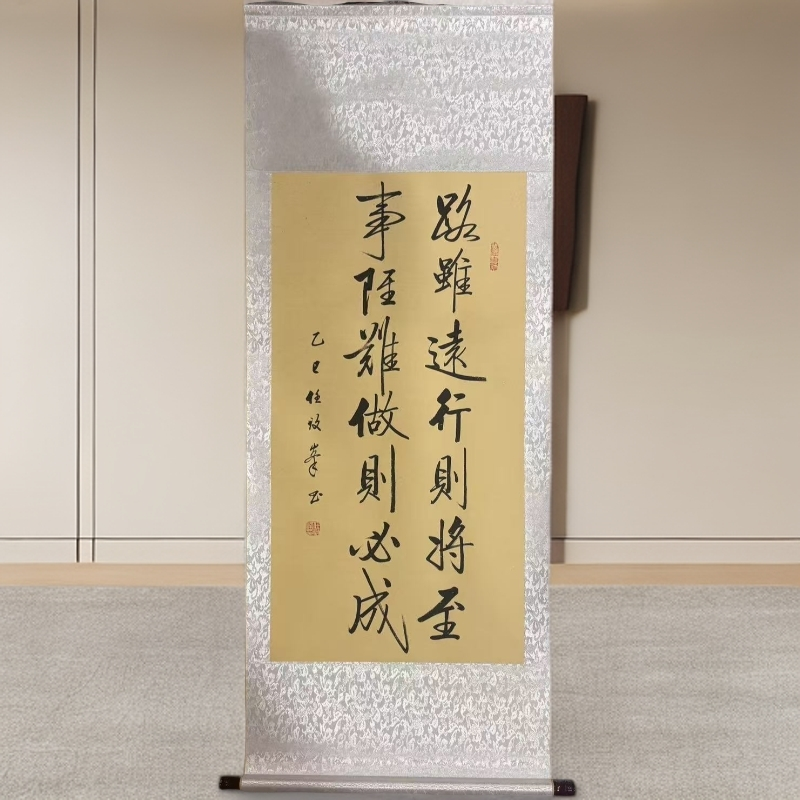 路雖遠行則將至
事雖難做則必成
乙巳任峯书